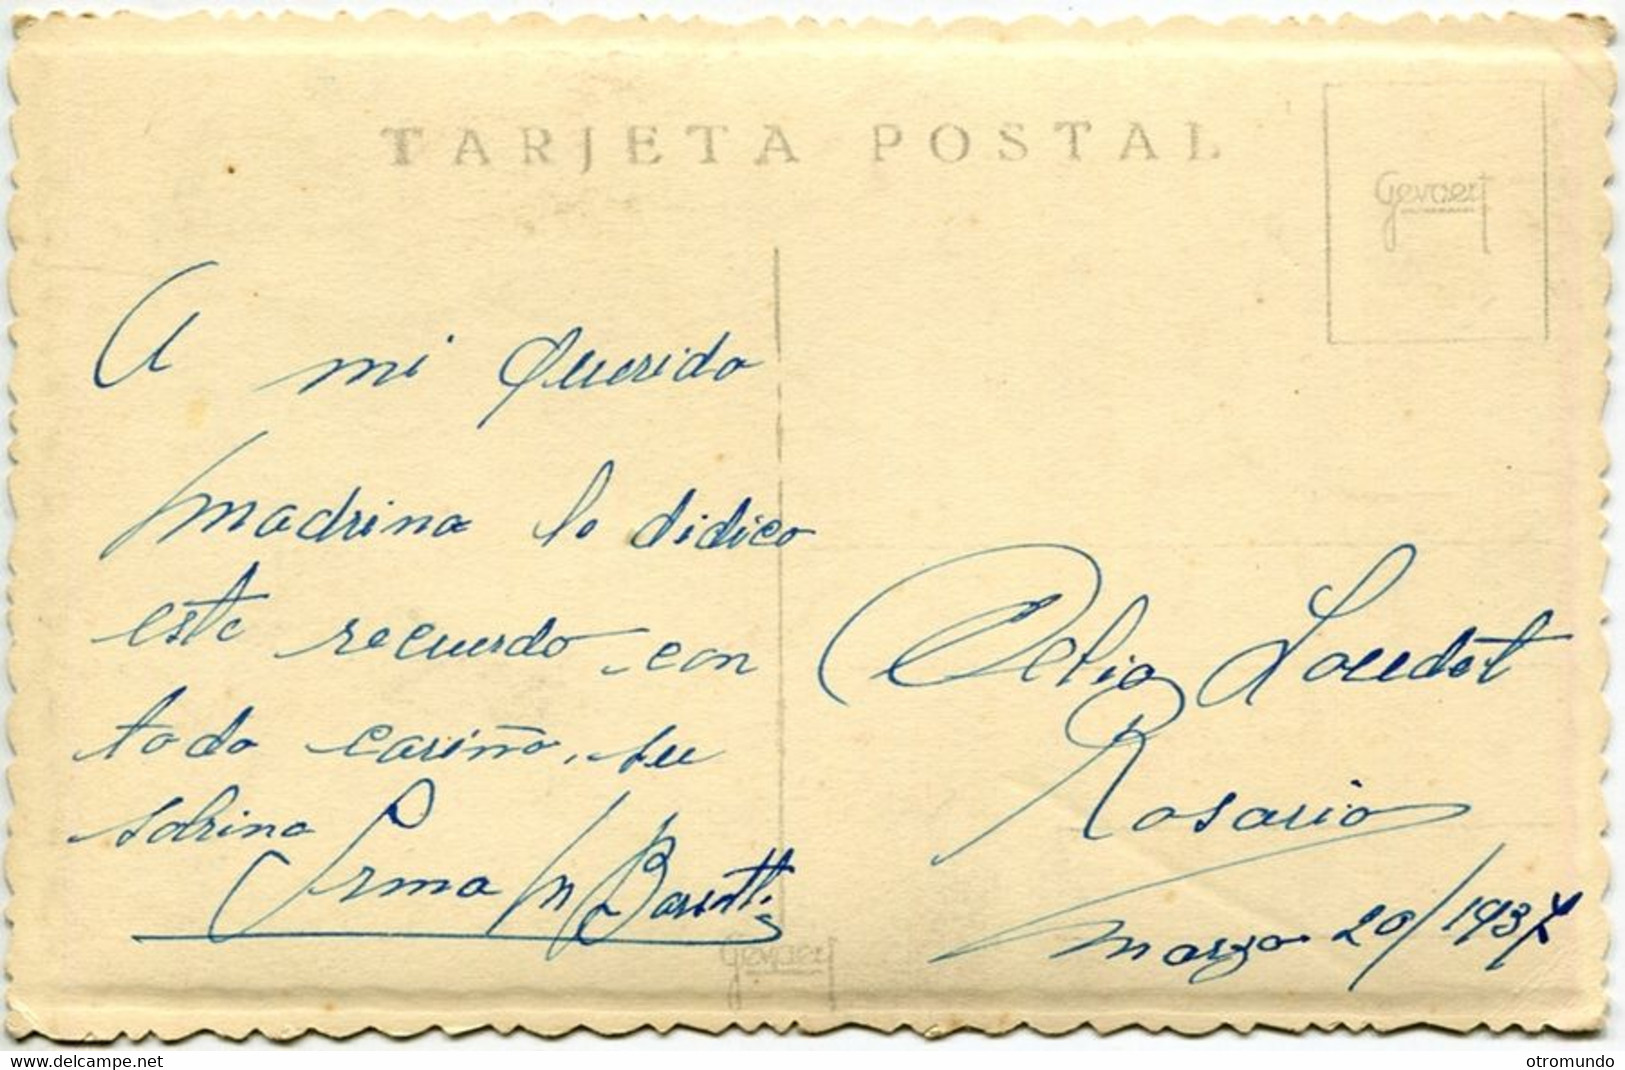 TARJETA POSTAL
Gevaert
A mi querida
madrina le didico
este recuerdo con
todo cariño, su
sobrina
Irma M Barotti
Celia Loudet
Rosario
Marzo 20/1937
Gevaert
www.delcampe.net
otromundo